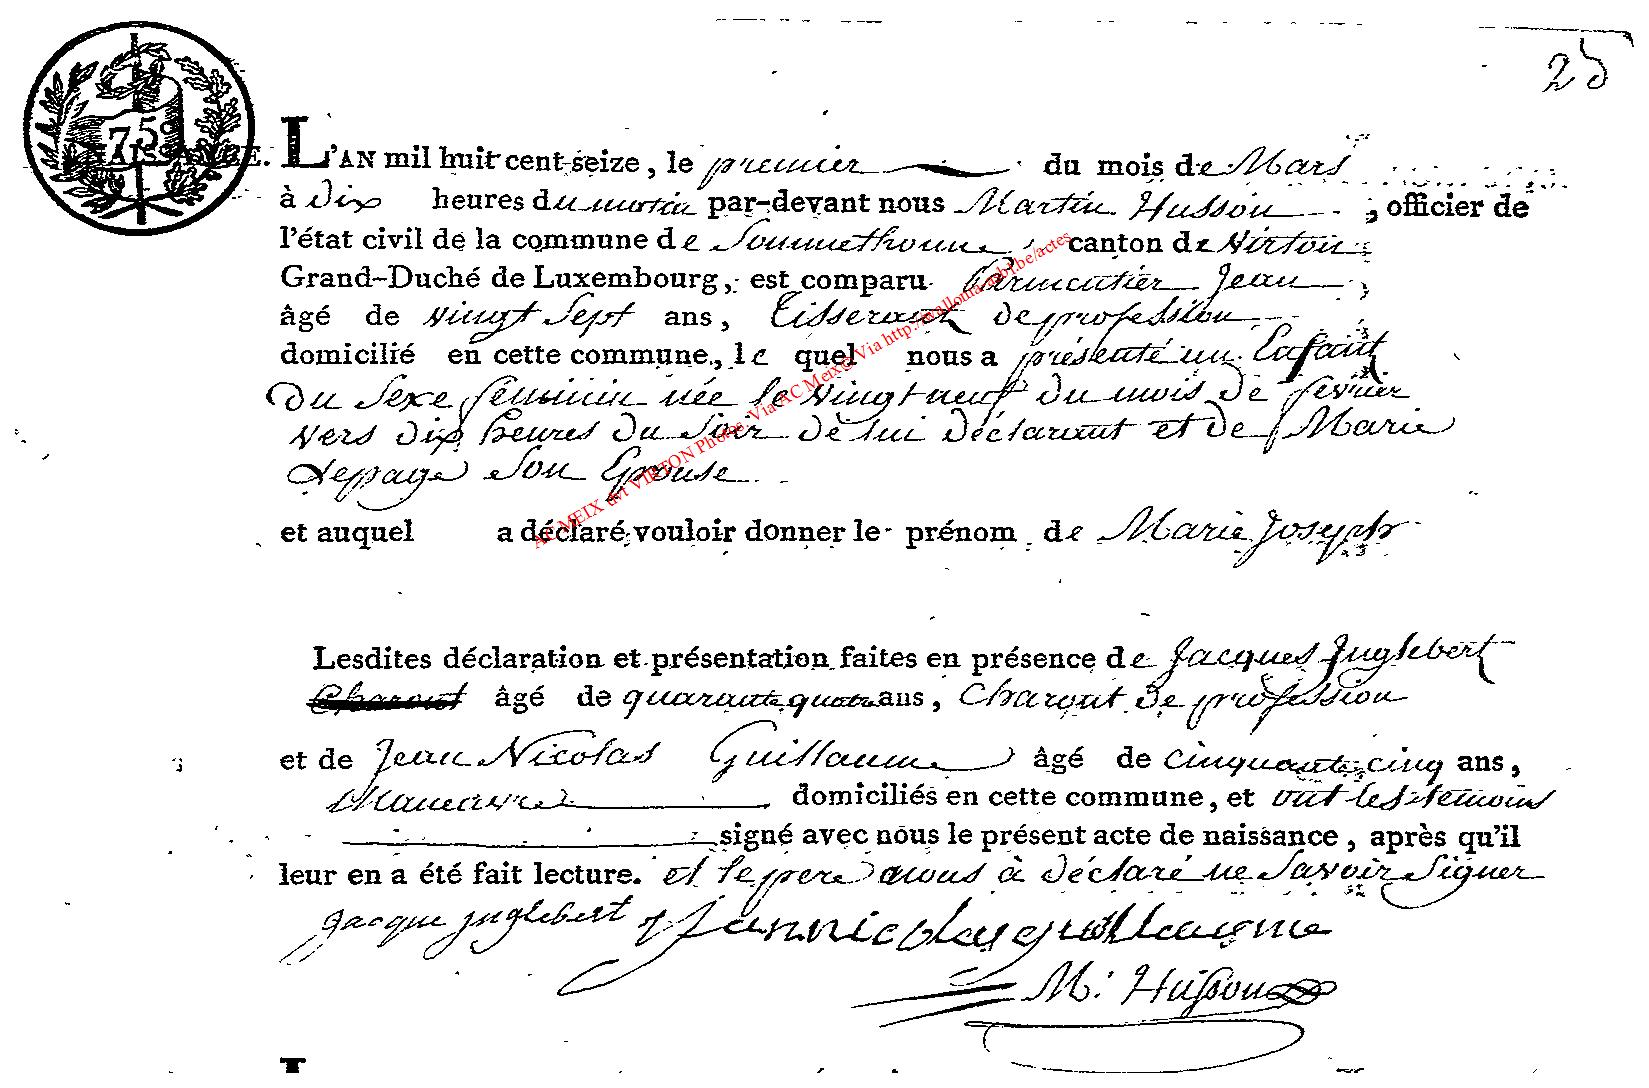 25
75
L'AN mil huit cent seize, le premier du mois de Mars
à dix heures du matin par-devant nous Martin Husson, officier de
l'état civil de la commune de Sommethonne, canton de Virton
Grand-Duché de Luxembourg, est comparu Parmentier Jean,
âgé de vingt Sept ans, Tisserant de profession
domicilié en cette commune, le quel nous a présenté un Enfant
du Sexe féminin née le vingt neuf du mois de fevrier
vers dix heures du Soir de lui déclarant et de Marie
Lepage Son Epouse
et auquel a déclaré vouloir donner le prénom de Marie Joseph
Lesdites déclaration et présentation faites en présence de Jacques Inglebert
âgé de quarante quatre ans, Charont de profession
et de Jean Nicolas Guillaume âgé de cinquante cinq ans,
Maneuvre domiciliés en cette commune, et ont les temoins
signé avec nous le présent acte de naissance, après qu'il
leur en a été fait lecture. et le pere a déclaré ne Savoir Signer
Jacque Inglebert Jannicolas guillaume
M. Husson
AC MEIX dvt VIRTON Photo Via AC Meix Via http://wallonia.ngbl.be/actes